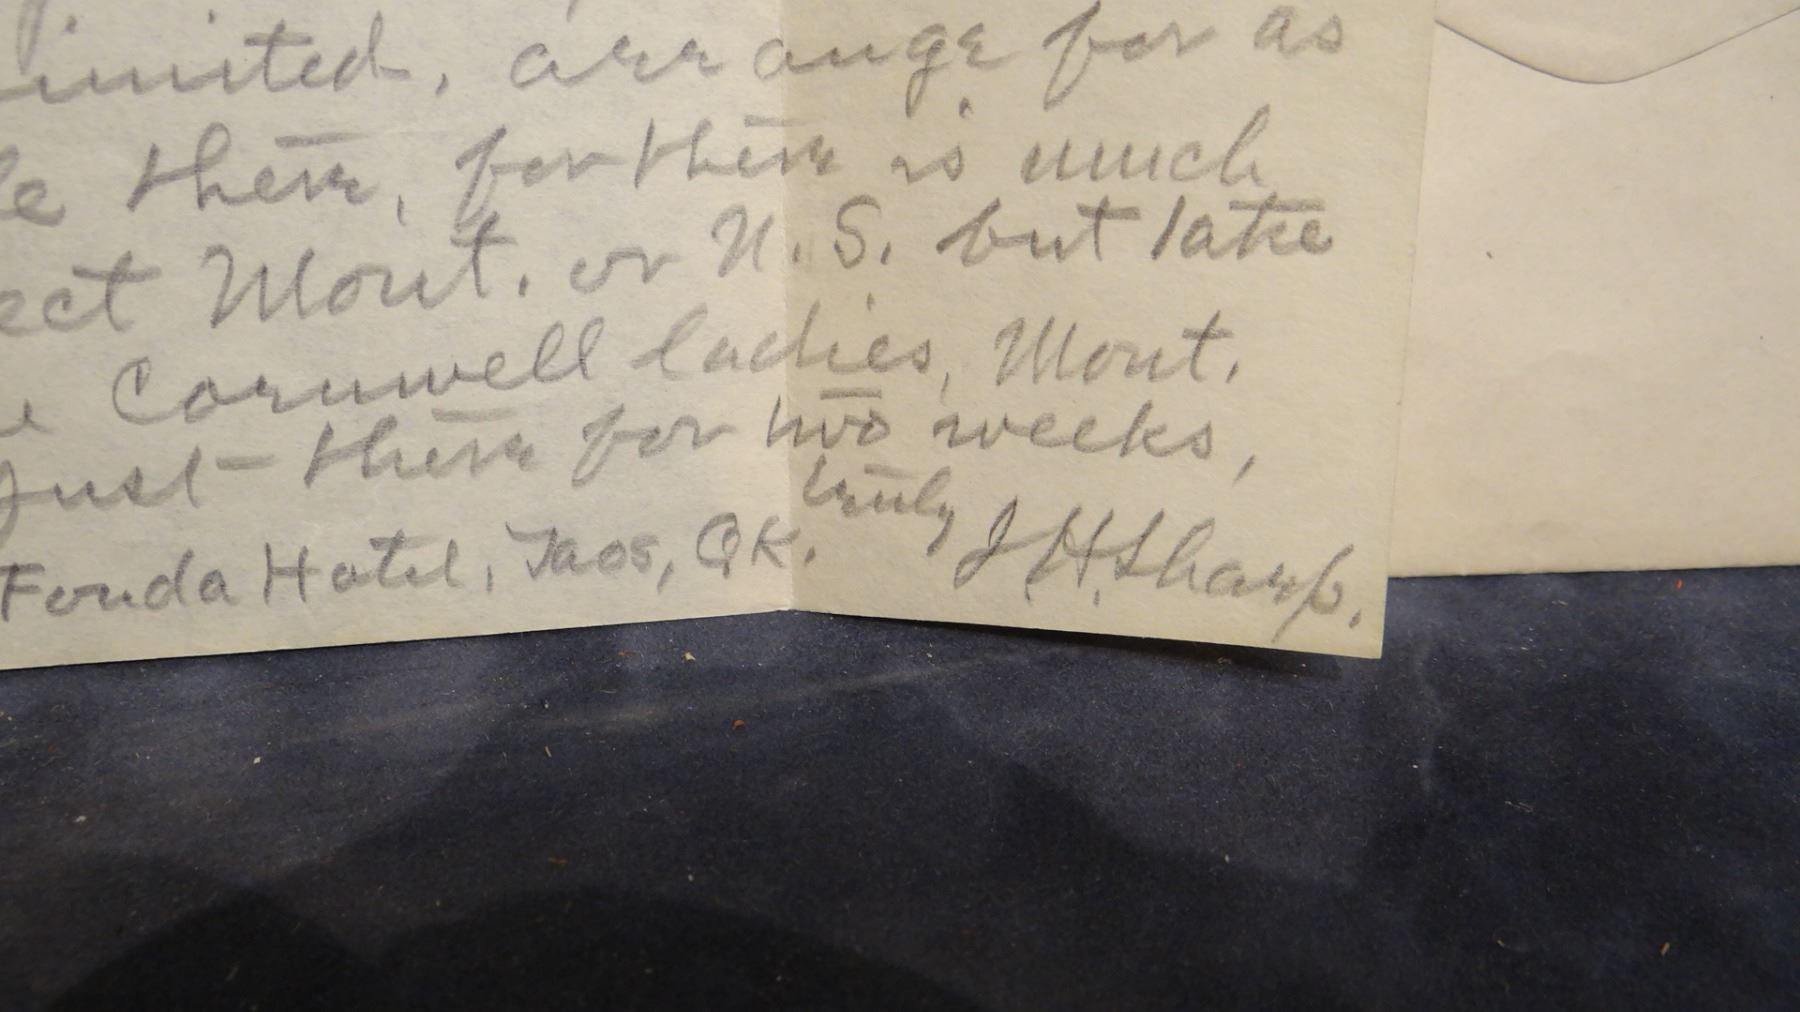 limited, arrange for as
there, for there is much
ect Mont. or N.S. but take
Cornwell ladies, Mont.
just there for two weeks,
truly J.H. Sharp.
Fonda Hotel, Taos, OK.